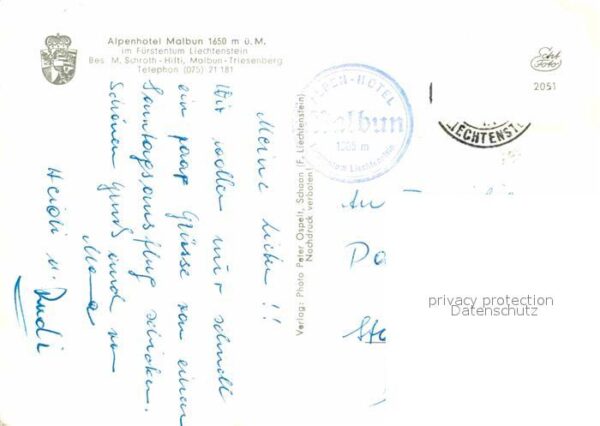 Alpenhotel Malbun 1650 m ü. M.
im Fürstentum Liechtenstein
Bes. M. Schroth-Hilti, Malbun-Triesenberg
Telephon (075) 21 181
Echt
Foto
2051
ALPEN-HOTEL
Malbun
Fürstentum Liechtenstein
LIECHTENST
Verlag: Photo Peter Ospelt, Schaan (F. Liechtenstein)
Nachdruck verboten
Meine Lieben!!
Wir wollen nur schnell
ein paar Grüsse von einem
Sonntagsausflug schicken.
Schönen Gruß auch von
Mama
Heidi u. Rudi
An
privacy protection
Datenschutz